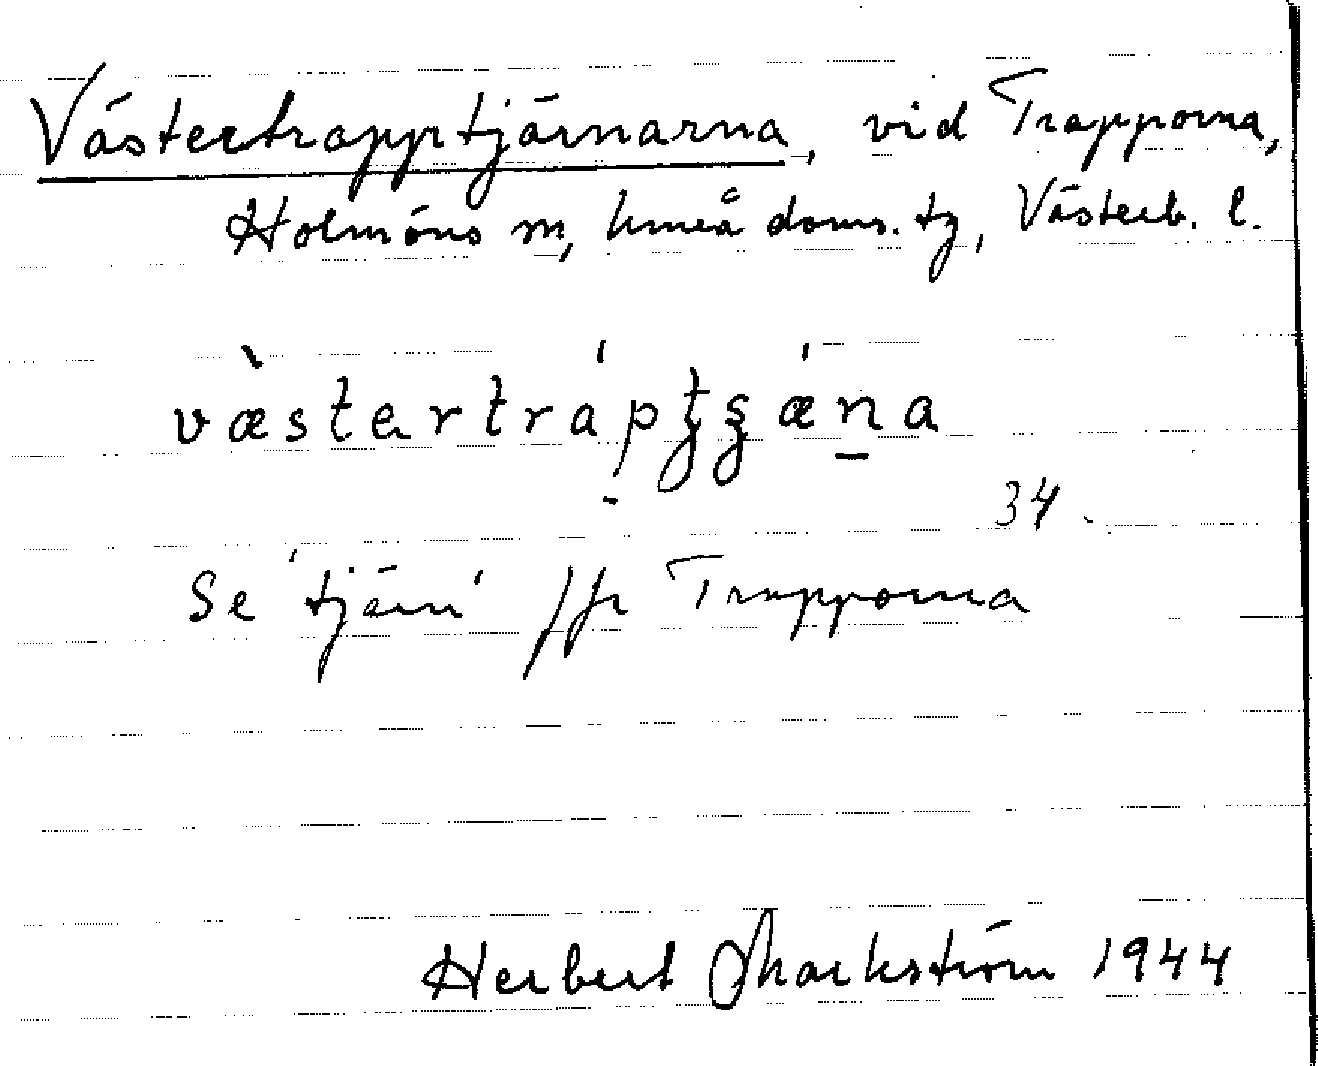 Västertrapptjärnarna, vid Trapporna,
Holmöns sn, Umeå doms. tg, Västerb. l.
væ̀stertráptʂǽṉa
34.
Se 'tjärn' Jfr Trapporna
Herbert Markström 1944